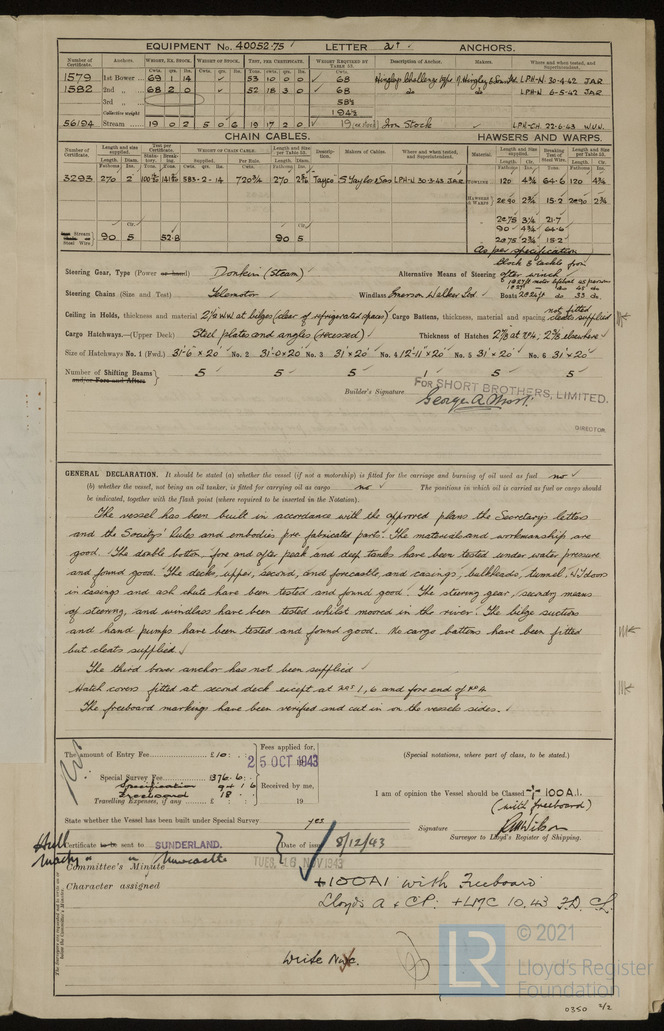 EQUIPMENT No. 40052.75 LETTER a† ANCHORS.
Number of Certificate. Anchors. WEIGHT, EX. STOCK. WEIGHT OF STOCK. TEST, PER CERTIFICATE. WEIGHT REQUIRED BY TABLE 53. Description of Anchor. Makers. Where and when tested, and Superintendent.
1579 1st Bower 69 1 14 53 10 0 0 68 LPH-N. 30-4-42 JAR
1582 2nd 68 2 0 52 18 3 0 68 do do LPH-N 6-5-42 JAR
3rd 58½
Collective weight 194½
56194 Stream 19 0 2 5 0 6 19 17 2 0 19 Iron Stock LPH-CH. 22-6-43
CHAIN CABLES. HAWSERS AND WARPS.
3293 270 2 583-2-14 720¾ 270 Tayco S Taylor & Sons LPH-N 30-3-43 JAR 120 4¾ 64.6 120 4¾
HAWSERS & WARPS 2@90 2¾ 15.2 2@90 2¾
2@75 3¼ 21.7
90 4¾ 64.6
2@75 2¾ 15.2
Stream Steel Wire 90 5 52.8 90 5
As per specification
Block & tackle from
Steering Gear, Type (Power or hand) Donkin (Steam) Alternative Means of Steering after winch
Steering Chains (Size and Test) Telemotor Windlass Emerson Walker Ltd Boats
not fitted
Ceiling in Holds, thickness and material 2½ W.W. at bilges (clear of refrigerated spaces) Cargo Battens, thickness, material and spacing cleats supplied
Cargo Hatchways.—(Upper Deck) Steel plates and angles (recessed) Thickness of Hatches 2⅞ at No 4, 2⅜ elsewhere
Size of Hatchways No. 1 (Fwd.) 31'-6 × 20' No. 2 31'-0 × 20' No. 3 31' × 20' No. 4 12'-11" × 20' No. 5 31' × 20' No. 6 31' × 20'
Number of Shifting Beams and/or Fore and Afters 5 5 5 1 5 5
Builder's Signature FOR SHORT BROTHERS, LIMITED.
George A. Short.
DIRECTOR
GENERAL DECLARATION. It should be stated (a) whether the vessel (if not a motorship) is fitted for the carriage and burning of oil used as fuel no
(b) whether the vessel, not being an oil tanker, is fitted for carrying oil as cargo no The positions in which oil is carried as fuel or cargo should
be indicated, together with the flash point (where required to be inserted in the Notation).
The vessel has been built in accordance with the approved plans the Secretarys letters
and the Society's Rules and embodies pre fabricated parts. The materials and workmanship are
good. The double bottom, fore and after peak and deep tanks have been tested under water pressure
and found good. The decks, upper, second, and forecastle, and casings, bulkheads, tunnel, W.T doors
in casings and ash chute have been tested and found good. The steering gear, secondry means
of steering, and windlass have been tested whilst moored in the river. The bilge suctions
and hand pumps have been tested and found good. No cargo battens have been fitted
but cleats supplied.
The third bower anchor has not been supplied
Hatch covers fitted at second deck except at Nos 1, 6 and fore end of No 4
The freeboard markings have been verified and cut in on the vessels sides.
The amount of Entry Fee £ 10 : : Fees applied for,
25 OCT 1943
Special Survey Fee £ 376. 6 :
Specification 94 1 6 Received by me,
Freeboard 18 :
Travelling Expenses, if any £ : : 19
(Special notations, where part of class, to be stated.)
I am of opinion the Vessel should be Classed ✠ 100 A.1.
(with freeboard)
State whether the Vessel has been built under Special Survey yes
Signature R.W. Wilson
Surveyor to Lloyd's Register of Shipping.
Hull Certificate to be sent to SUNDERLAND. Date of issue 8/12/43
Machy " " Newcastle TUES. 16 NOV 1943
Committee's Minute
Character assigned +100A1 with Freeboard
Lloyds A & CP. +LMC 10,43 F.D. CL.
Write
LR
© 2021
Lloyd's Register
Foundation
0350 2/2